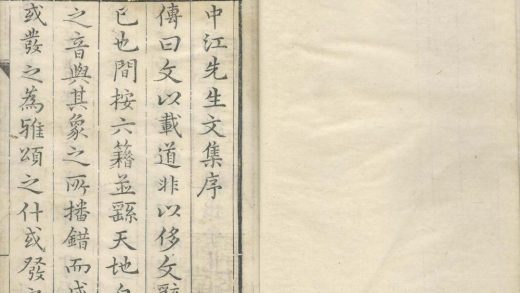 中江先生文集序
傳曰文以載道非以侈文辭
已也間按六籍並繇天地自
之音與其象之所播錯而成
或發之為雅頌之什或發之